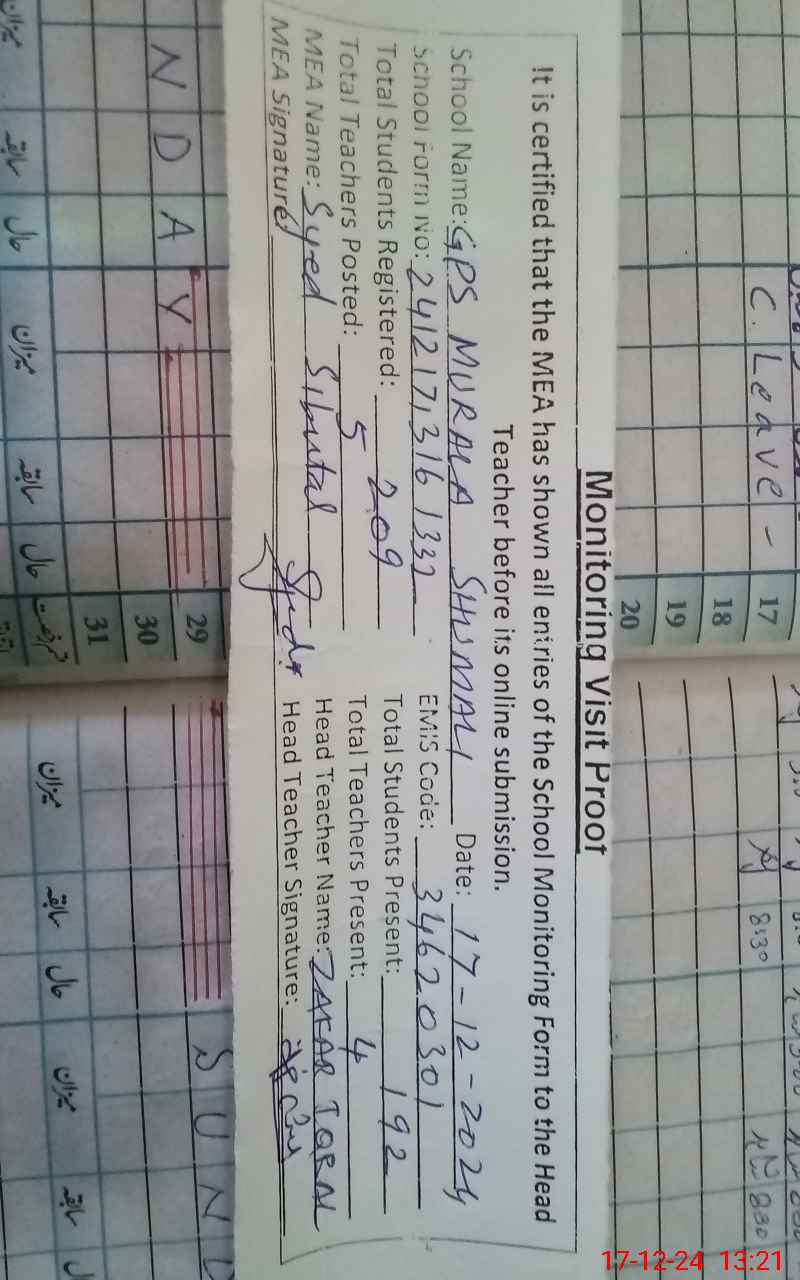 Monitoring Visit Proof
It is certified that the MEA has shown all entries of the School Monitoring Form to the Head
Teacher before its online submission.
School Name: GPS MURALA SHUMALI Date: 17-12-2024
School Form No: 241217,3161332 EMIS Code: 34620301
Total Students Registered: 209 Total Students Present: 192
Total Teachers Posted: 5 Total Teachers Present: 4
MEA Name: Syed Sibutal Head Teacher Name: ZAFAR IQBAL
MEA Signature: Head Teacher Signature:
C. Leave -
17
18
19
20
29
30
31
N D A Y
S U N D
میزان سابقہ حال میزان سابقہ حال
میزان سابقہ حال میزان سابقہ
8:30
8:30
17-12-24 13:21